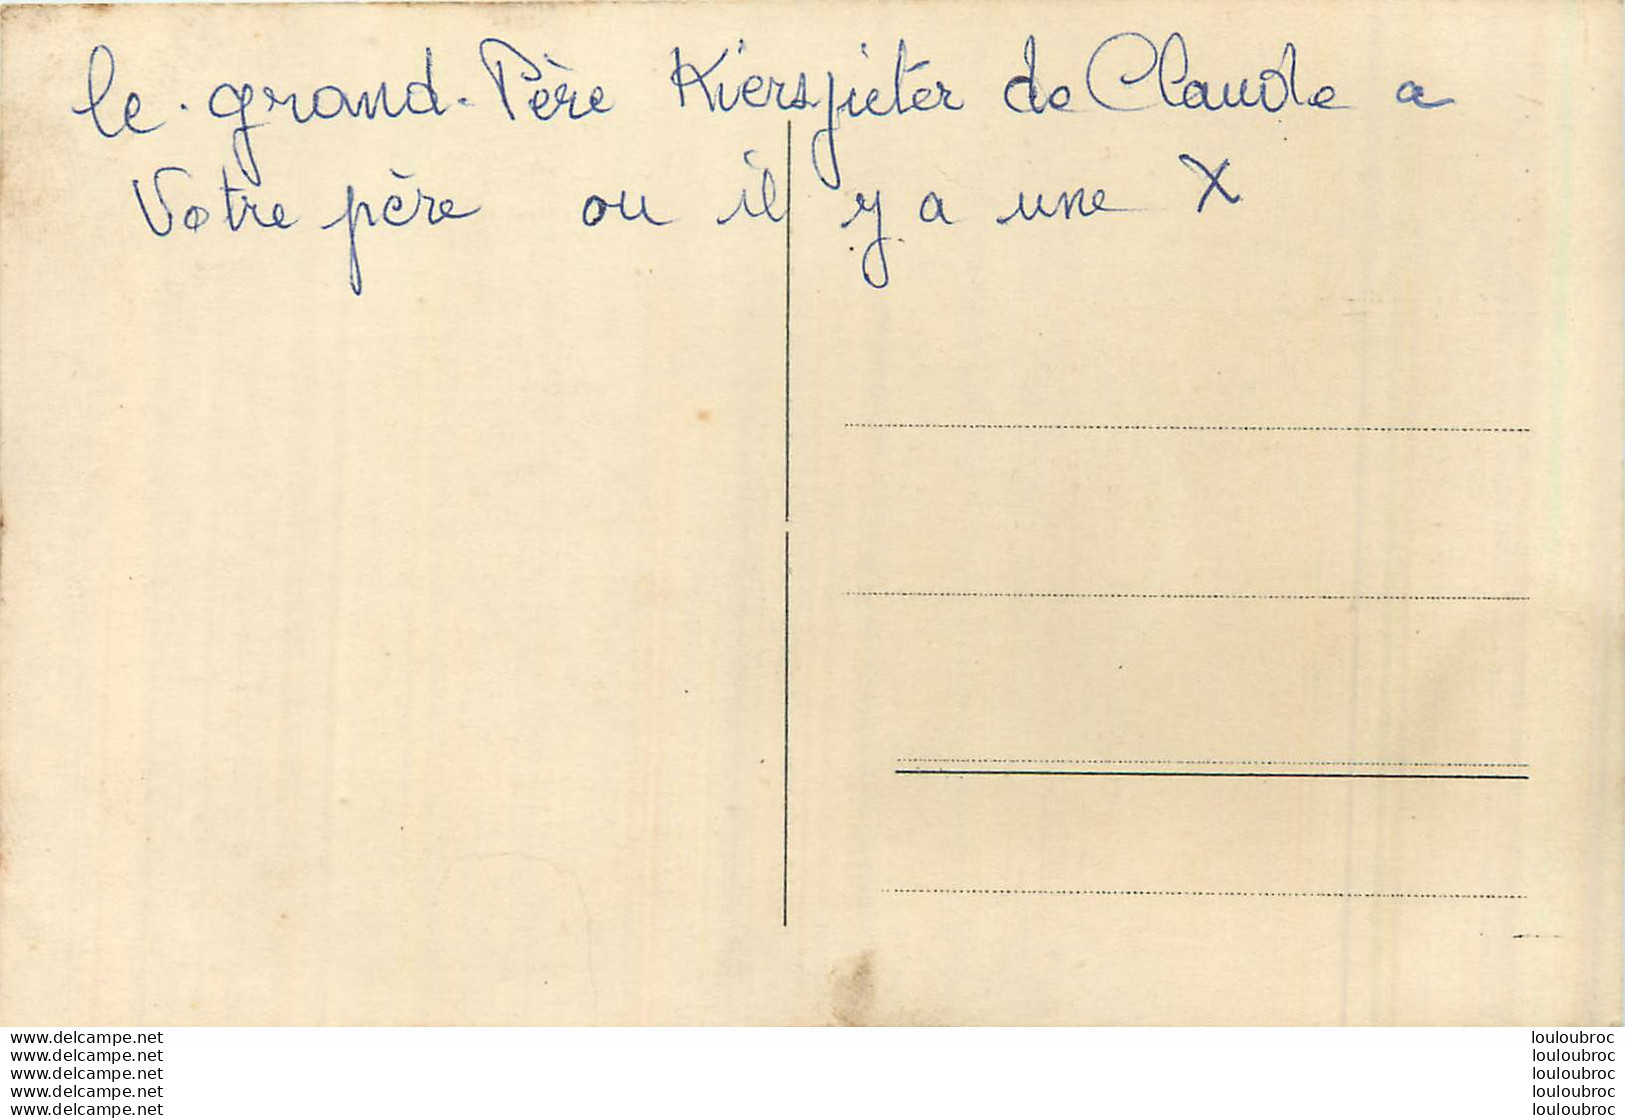 le grand-Père Kierspieter de Claude a
Votre père ou il y a une X
www.delcampe.net
www.delcampe.net
www.delcampe.net
www.delcampe.net
www.delcampe.net
louloubroc
louloubroc
louloubroc
louloubroc
louloubroc